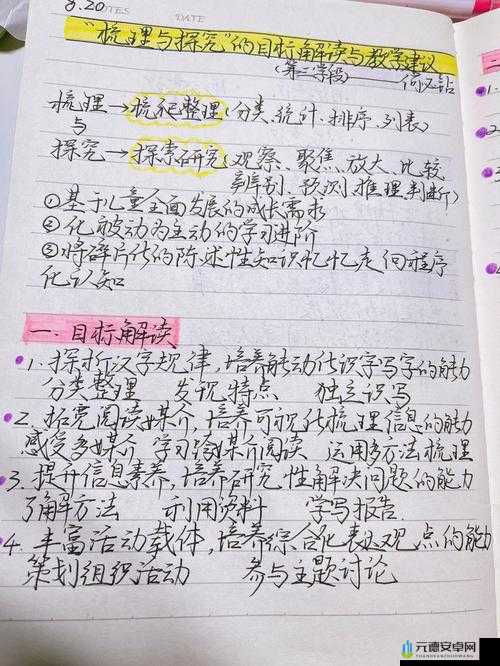 8.20
NOTES
DATE
“梳理与探究”的目标解读与教学建议
(第二学段)
梳理→梳茏整理(分类、统计、排序、列表)
与
探究→探索研究(观察、聚焦、放大、比较
辨别、预测、推理判断)
①基于儿童全面发展的成长需求
②化被动为主动的学习进阶
③将碎片化的陈述性知识忆忆走向程序
化认知
一.目标解读
1.探析汉字规律,培养能动化识字写字的能力
分类整理 发现特点 独立识写
2.拓宽阅读媒介,培养可视化梳理信息的能力
感受多媒介 学习跨媒介阅读 运用多方法梳理
3.提升信息素养,培养研究性解决问题的能力
了解方法 利用资料 学写报告.
4.丰富活动载体,培养综合化表达观点的能力
策划组织活动 参与主题讨论
元德安卓网